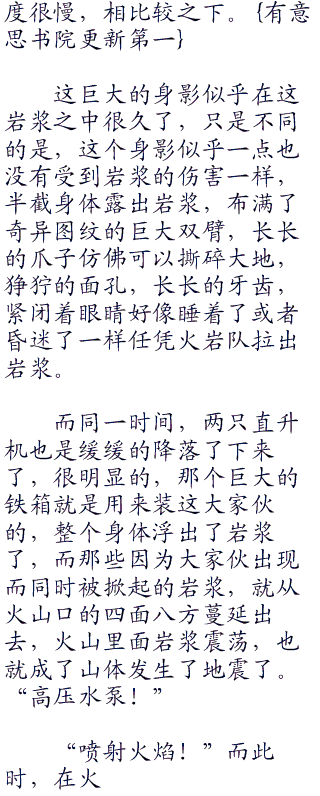 度很慢，相比较之下。{有意
思书院更新第一}
这巨大的身影似乎在这
岩浆之中很久了，只是不同
的是，这个身影似乎一点也
没有受到岩浆的伤害一样，
半截身体露出岩浆，布满了
奇异图纹的巨大双臂，长长
的爪子仿佛可以撕碎大地，
狰狞的面孔，长长的牙齿，
紧闭着眼睛好像睡着了或者
昏迷了一样任凭火岩队拉出
岩浆。
而同一时间，两只直升
机也是缓缓的降落了下来
了，很明显的，那个巨大的
铁箱就是用来装这大家伙
的，整个身体浮出了岩浆
了，而那些因为大家伙出现
而同时被掀起的岩浆，就从
火山口的四面八方蔓延出
去，火山里面岩浆震荡，也
就成了山体发生了地震了。
“高压水泵！”
“喷射火焰！”而此
时，在火